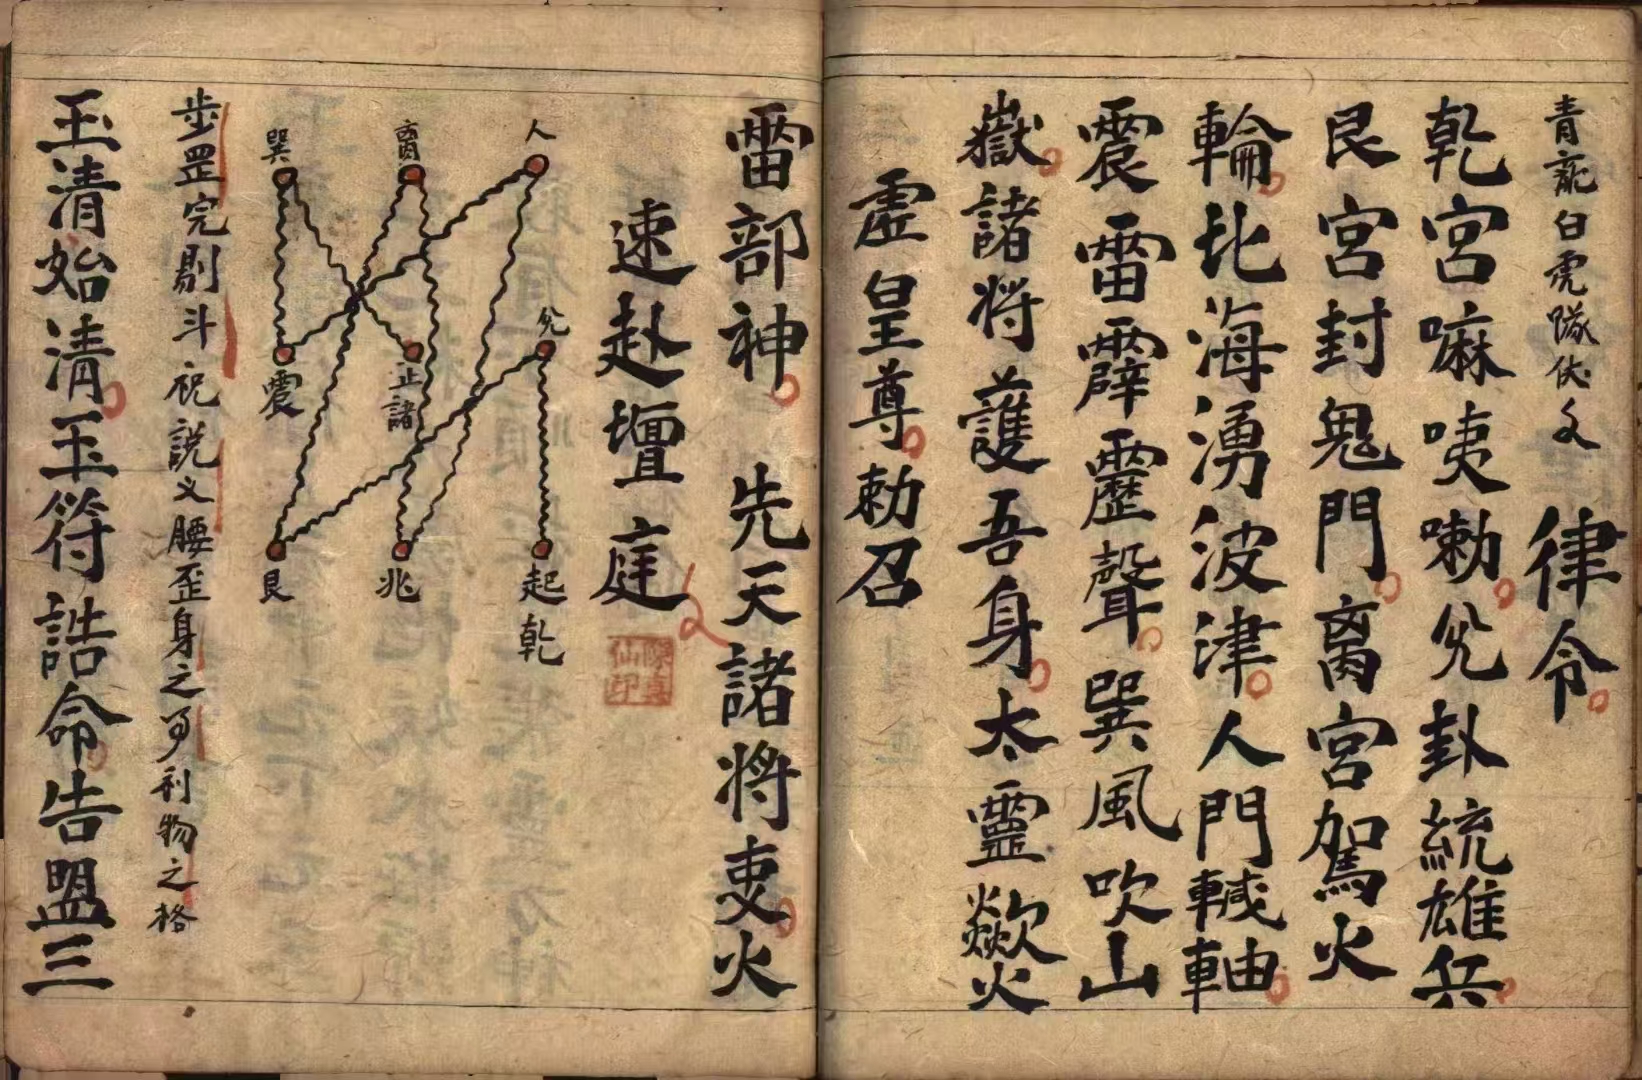 青龍白虎隊伏文
律令
乾宮嘛咦嘞兊卦統雄兵
艮宮封鬼門离宮駕火
輪北海湧波津人門轗軸
震雷霹靂聲巽風吹山
嶽諸將護吾身太靈歘火
虛皇尊勅召
雷部神先天諸將吏火
速赴壇庭
人
离
巽
兊
正諸
震
起乾
兆
艮
步罡完剔斗祝説乂腰歪身之可利物之格
玉清始清玉符誥命告盟三